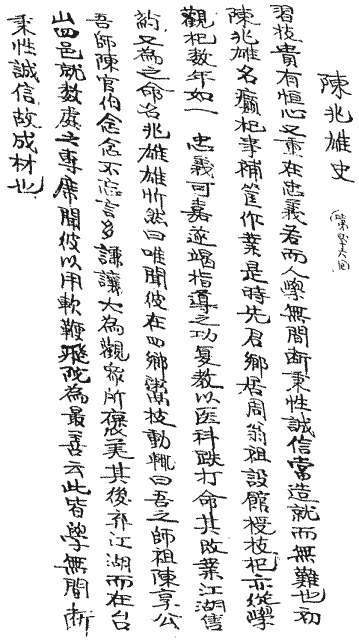 陳兆雄史
習技貴有恒心又重在忠義若而人學無間断秉性誠信當造就而無難也初
陳兆雄名癩杷業補筐作業是時先君鄉居周翁祖設館授技杷亦從學
觀杷数年如一 忠義可嘉遂竭指導之功复教以医科跌打命其改業江湖售
藥又為之命名兆雄雄忻然曰唯聞彼在四鄉鬻技動輒曰吾之師祖陳享公
吾師陳官伯念念不忘言多謙讓大為觀衆所褒美其後在江湖而在台
山四邑就数處之專席聞彼以用軟鞭飛陀為最善云此皆學無間断
秉性誠信故成材也